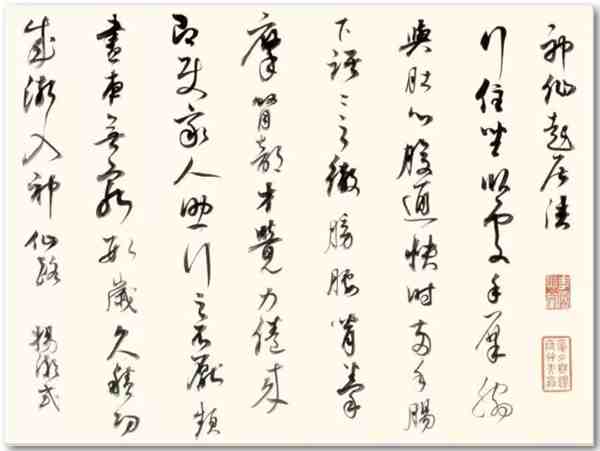 神仙起居法
行住坐臥處手摩脇
與肚心腹通快時兩手腸
下踞々之徹膀腰背拳
摩腎部才覺力倦來
即使家人助行之不厭頻
晝夜無窮數歲久積功
成漸入神仙路 楊凝式